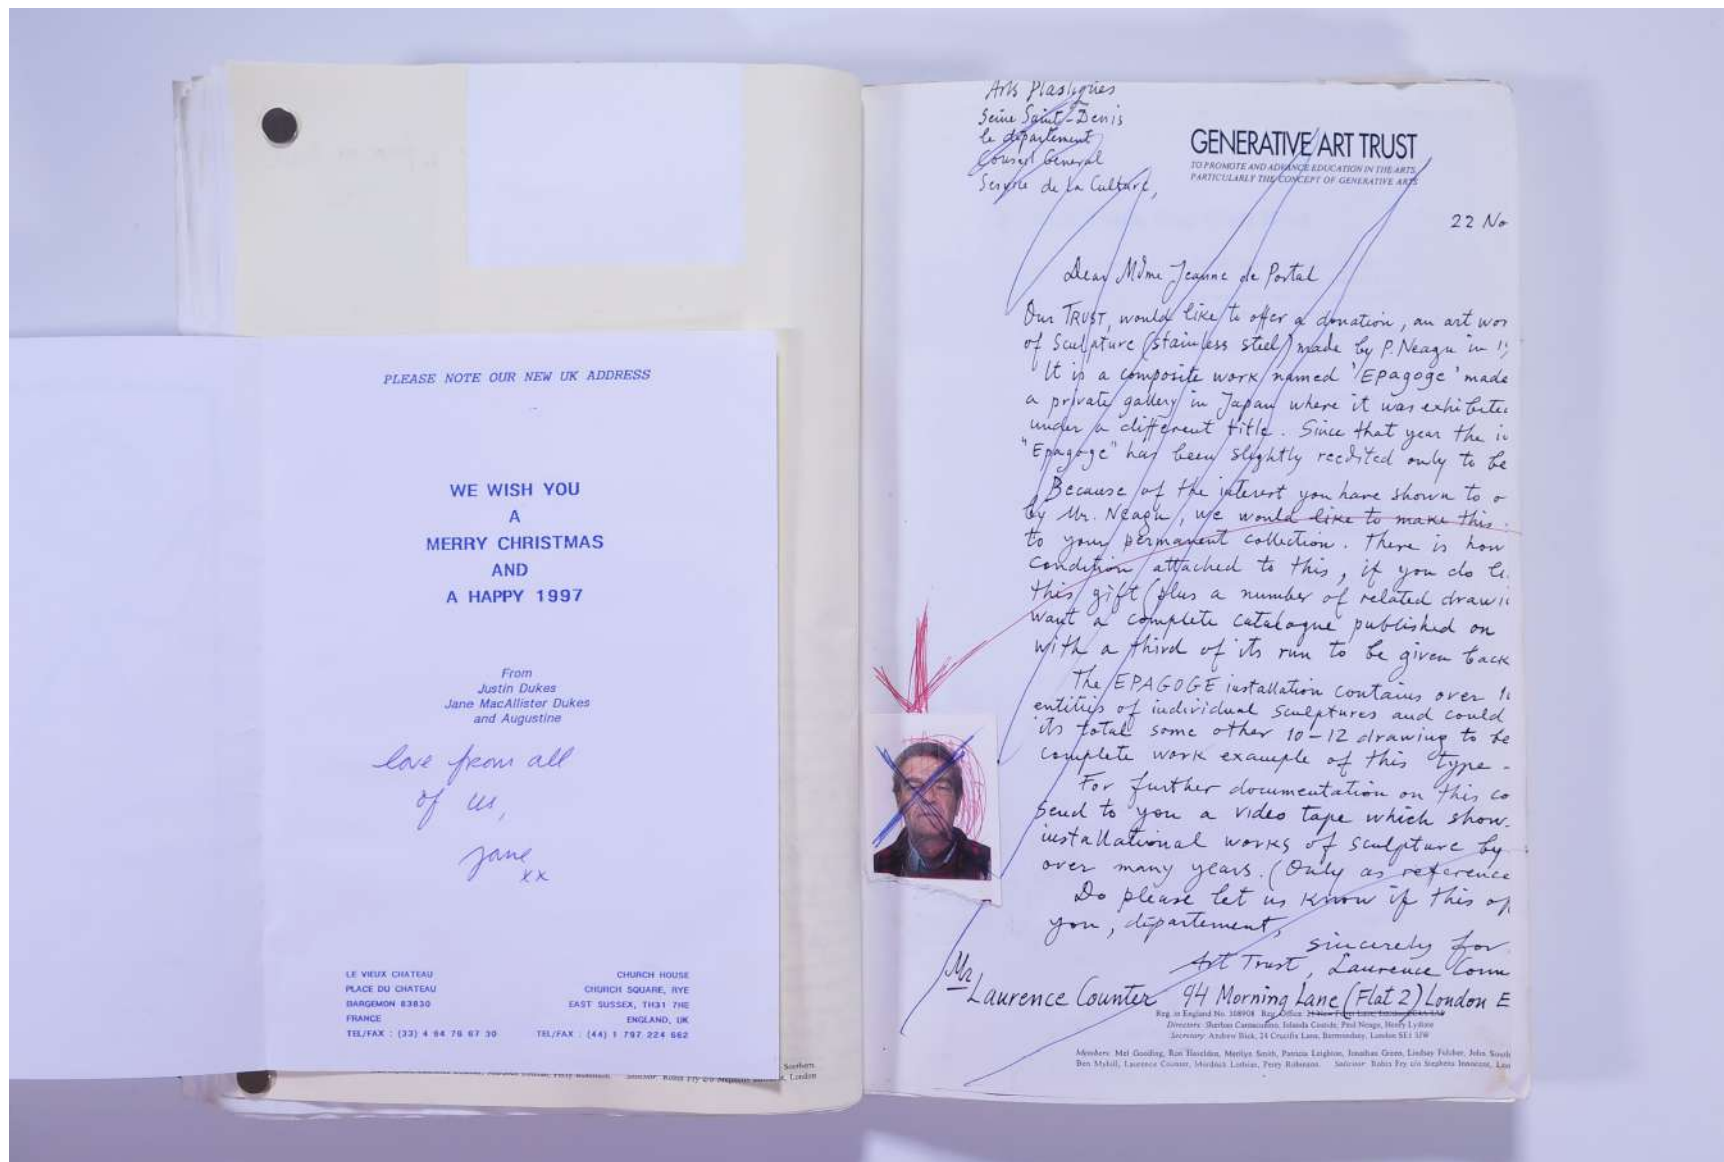 PLEASE NOTE OUR NEW UK ADDRESS
WE WISH YOU
A
MERRY CHRISTMAS
AND
A HAPPY 1997
From
Justin Dukes
Jane MacAllister Dukes
and Augustine
love from all
of us,
Jane
xx
LE VIEUX CHATEAU
PLACE DU CHATEAU
BARGEMON 83830
FRANCE
TEL/FAX : (33) 4 94 76 67 30
CHURCH HOUSE
CHURCH SQUARE, RYE
EAST SUSSEX, TH31 7HE
ENGLAND, UK
TEL/FAX : (44) 1 797 224 662
Southern
Solicitor: Robin Fry c/o Stephens London
Arts Plastiques
Seine Saint-Denis
le département
Conseil General
Service de la Culture,
GENERATIVE ART TRUST
TO PROMOTE AND ADVANCE EDUCATION IN THE ARTS,
PARTICULARLY THE CONCEPT OF GENERATIVE ARTS
22 No
Dear Mdme Jeanne de Portal
Our TRUST, would like to offer a donation, an art wor
of Sculpture (stainless steel) made by P. Neagu in 1
It is a composite work named 'Epagoge' made
a private gallery in Japan where it was exhibite
under a different title. Since that year the
"Epagoge" has been slightly reedited only to be
Because of the interest you have shown to o
by Mr. Neagu, we would like to make this
to your permanent collection. There is how
condition attached to this, if you do
this gift (plus a number of related draw
want a complete catalogue published on
with a third of its run to be given back
The EPAGOGE installation contains over 1
entities of individual sculptures and could
its total some other 10-12 drawing to be
complete work example of this type.
For further documentation on this co
send to you a video tape which show
installational works of sculpture by
over many years. (Only as reference
Do please let us know if this op
you, département,
sincerely for
Art Trust, Laurence Coun
Mr Laurence Counter 94 Morning Lane (Flat 2) London E
Reg. in England No. 108904 Reg. Office:
Directors: Sherban Cantacuzino, Iolanda Costide, Paul Neagu, Henry Lydiate
Secretary: Andrew Bick, 24 Crucifix Lane, Bermondsey, London SE1 3JW
Members: Mel Gooding, Ron Haselden, Merilyn Smith, Patricia Leighton, Jonathan Green, Lindsey Fulcher, John South
Ben Myhill, Laurence Counter, Murdoch Lothian, Perry Robinson. Solicitor: Robin Fry c/o Stephens Innocent, Lon